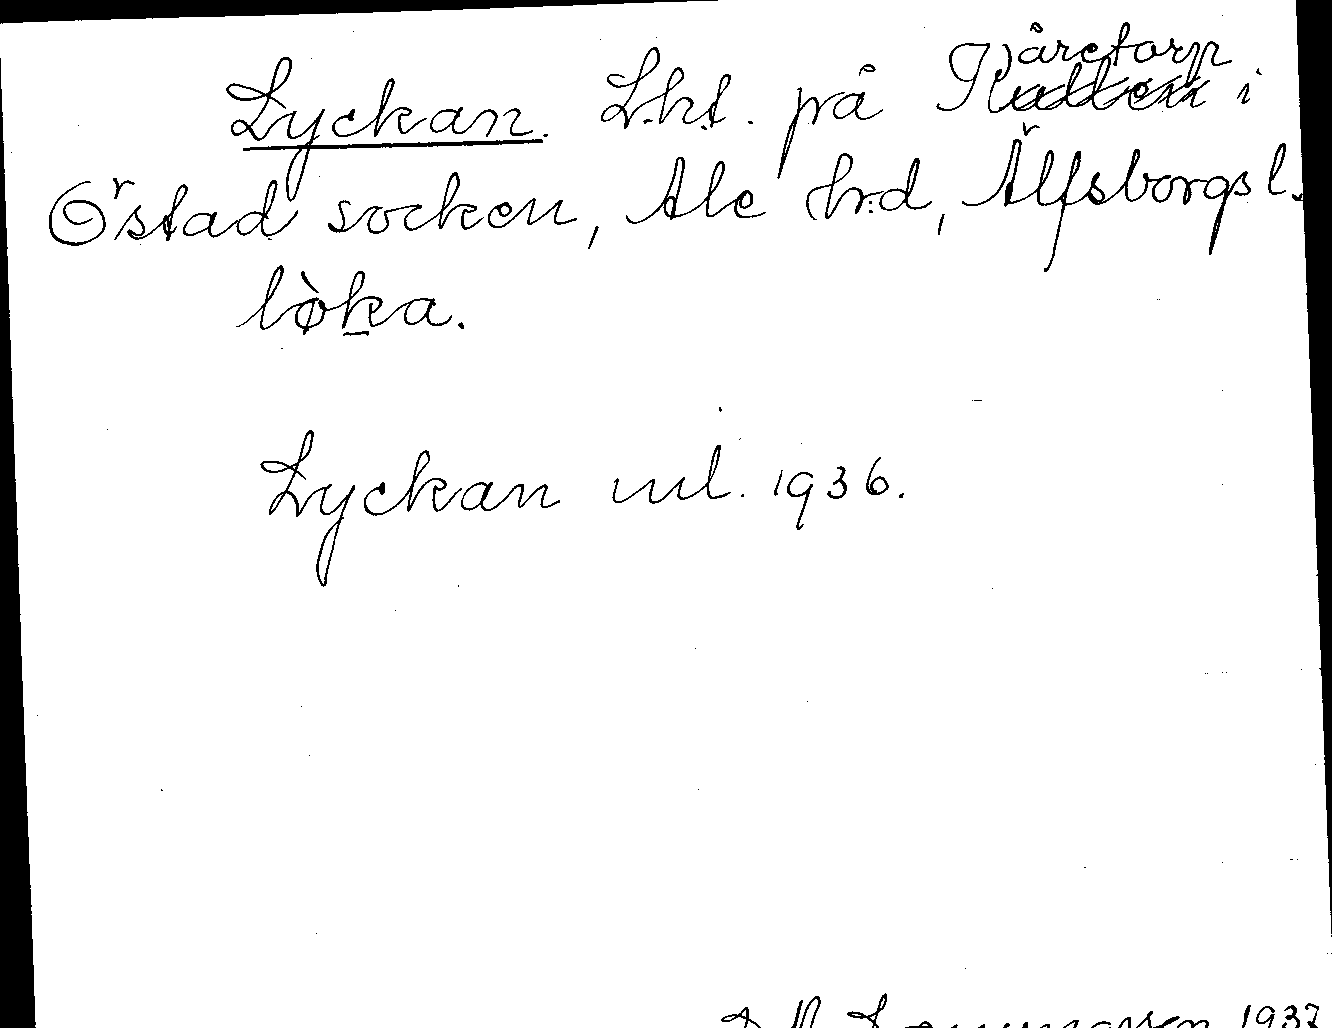 Lyckan. L.ht. på Gjäretorp i
Östad socken, Ale hrd, Älfsborgs l.
lø̀ka.
Lyckan ml. 1936.
1937